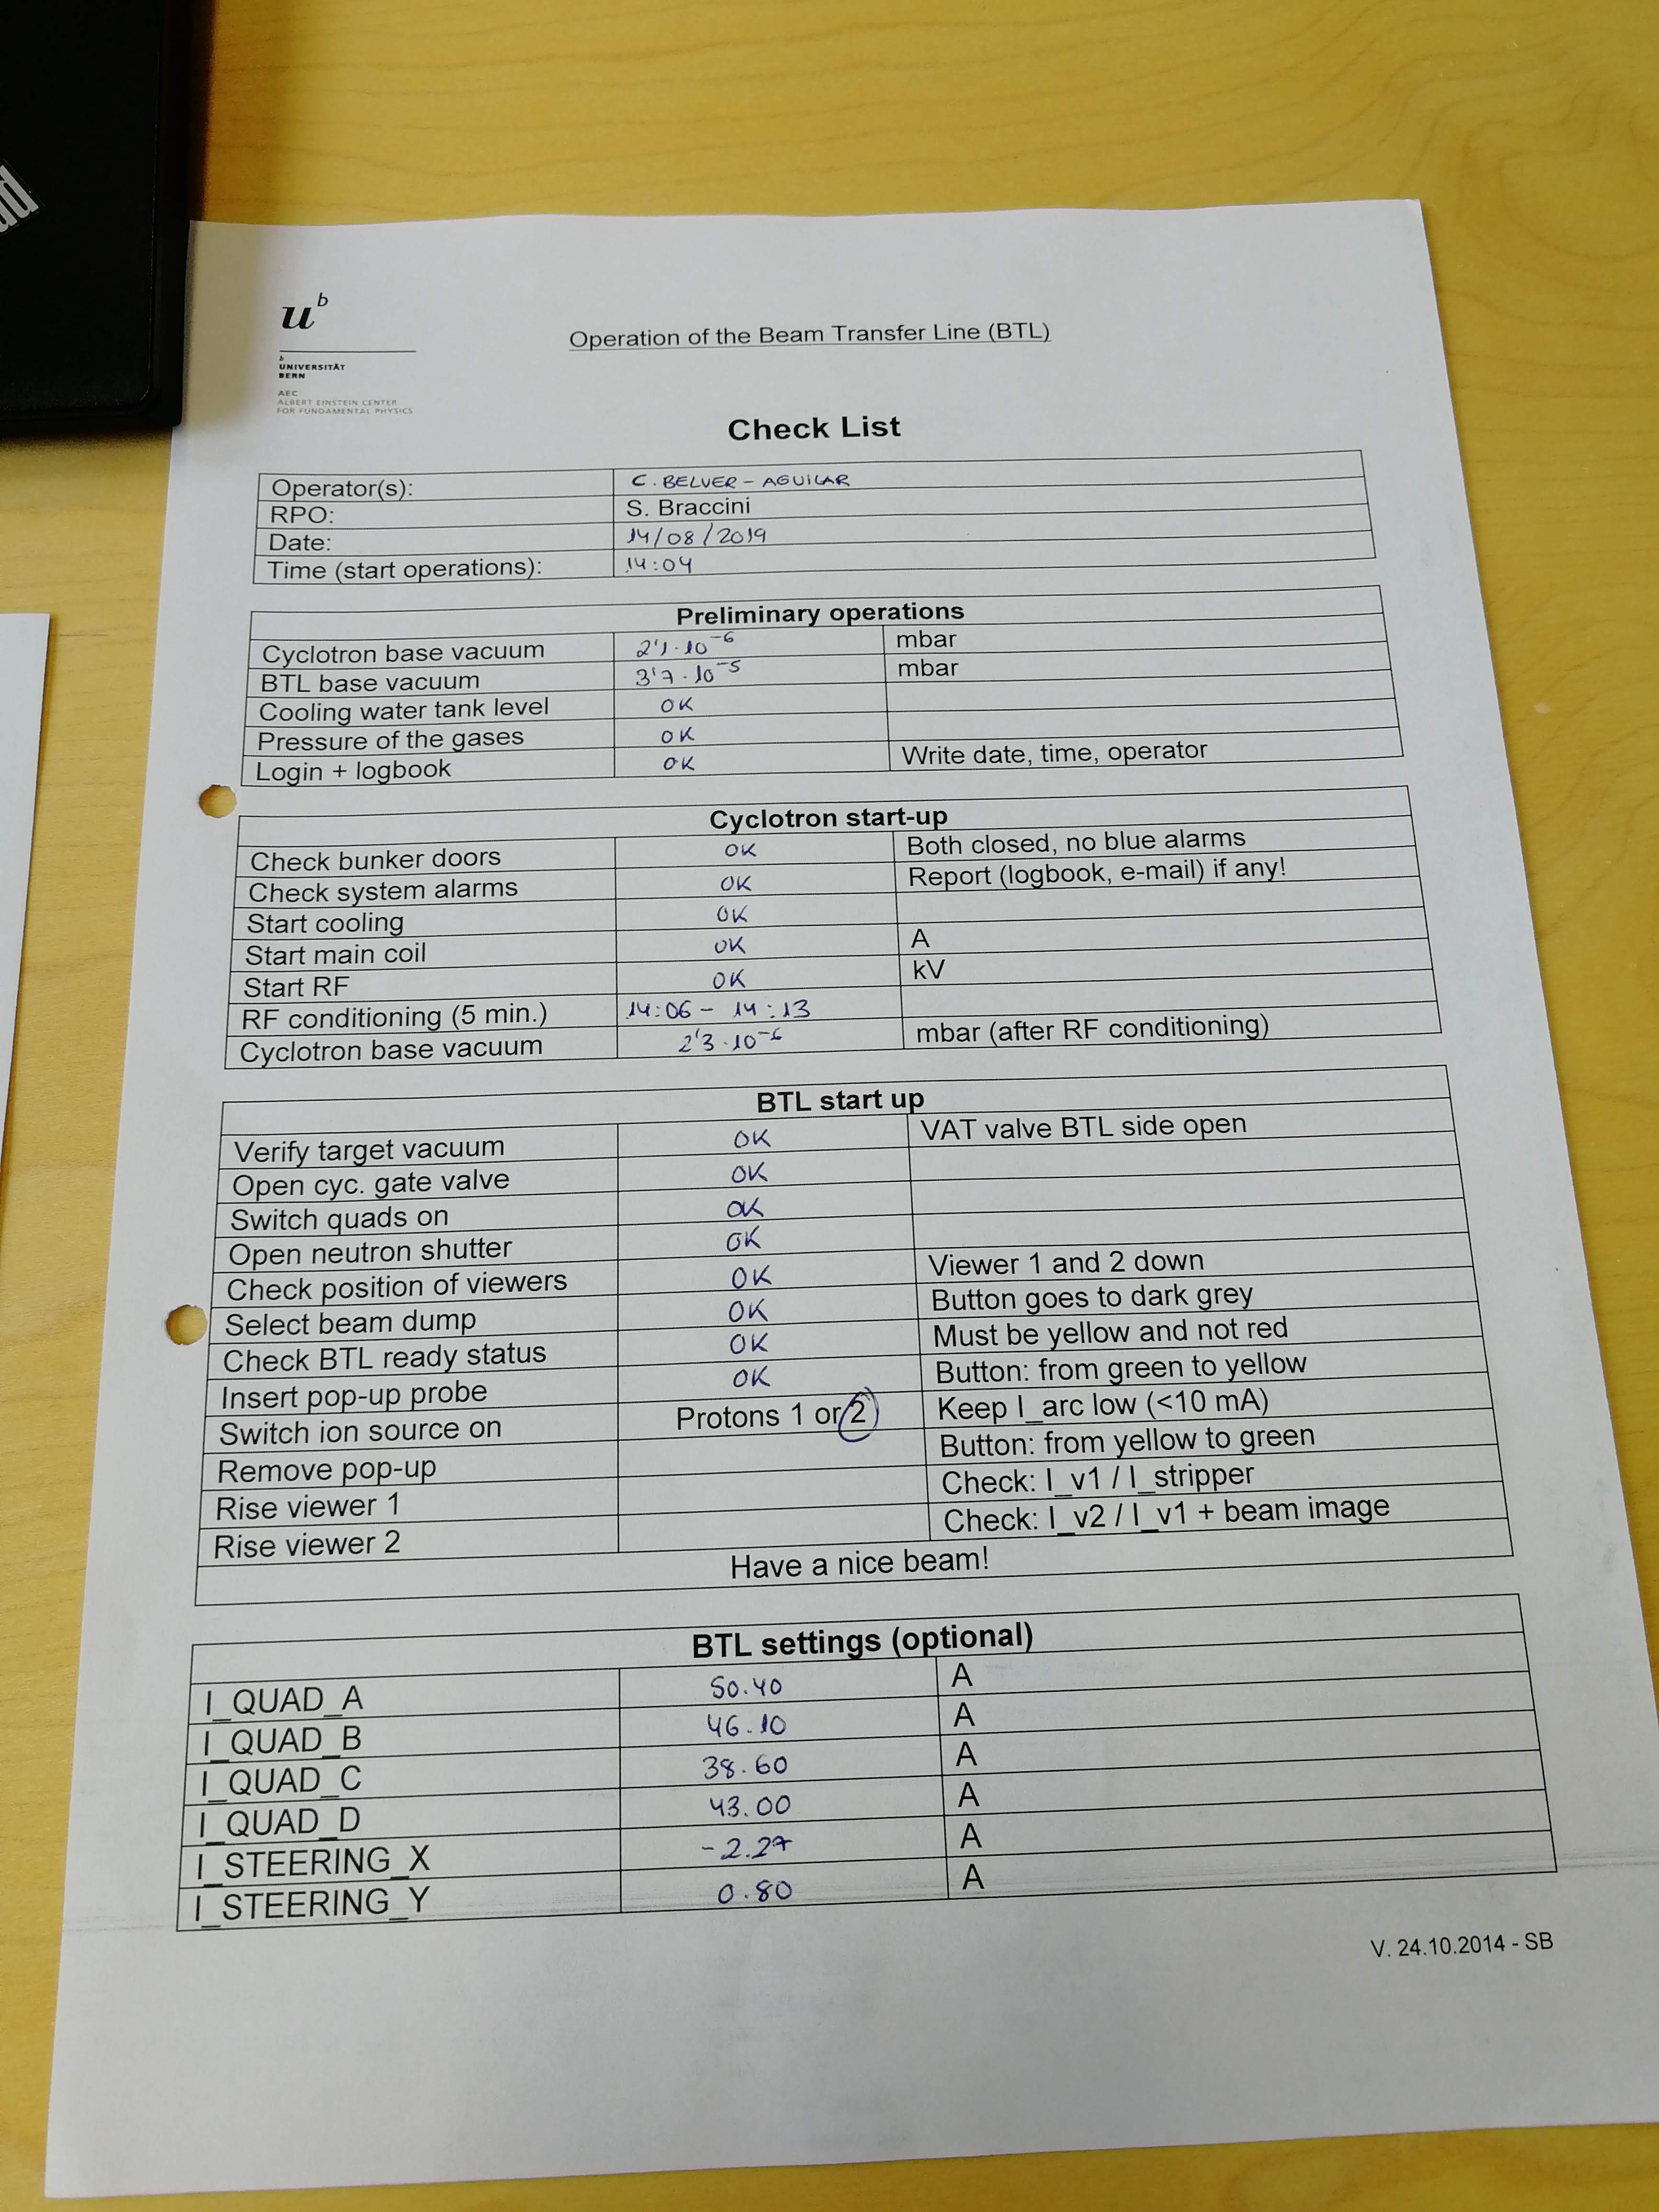 u^b
b
UNIVERSITÄT
BERN
AEC
ALBERT EINSTEIN CENTER
FOR FUNDAMENTAL PHYSICS
Operation of the Beam Transfer Line (BTL)
Check List
Operator(s): C. BELVER - AGUILAR
RPO: S. Braccini
Date: 14/08/2019
Time (start operations): 14:04
Preliminary operations
Cyclotron base vacuum 2'1·10^-6 mbar
BTL base vacuum 3'7·10^-5 mbar
Cooling water tank level OK
Pressure of the gases OK
Login + logbook OK Write date, time, operator
Cyclotron start-up
Check bunker doors OK Both closed, no blue alarms
Check system alarms OK Report (logbook, e-mail) if any!
Start cooling OK
Start main coil OK A
Start RF OK kV
RF conditioning (5 min.) 14:06 - 14:13
Cyclotron base vacuum 2'3·10^-6 mbar (after RF conditioning)
BTL start up
Verify target vacuum OK VAT valve BTL side open
Open cyc. gate valve OK
Switch quads on OK
Open neutron shutter OK
Check position of viewers OK Viewer 1 and 2 down
Select beam dump OK Button goes to dark grey
Check BTL ready status OK Must be yellow and not red
Insert pop-up probe OK Button: from green to yellow
Switch ion source on Protons 1 or 2 Keep I_arc low (<10 mA)
Remove pop-up Button: from yellow to green
Rise viewer 1 Check: I_v1 / I_stripper
Rise viewer 2 Check: I_v2 / I_v1 + beam image
Have a nice beam!
BTL settings (optional)
I_QUAD_A 50.40 A
I_QUAD_B 46.10 A
I_QUAD_C 38.60 A
I_QUAD_D 43.00 A
I_STEERING_X -2.27 A
I_STEERING_Y 0.80 A
V. 24.10.2014 - SB